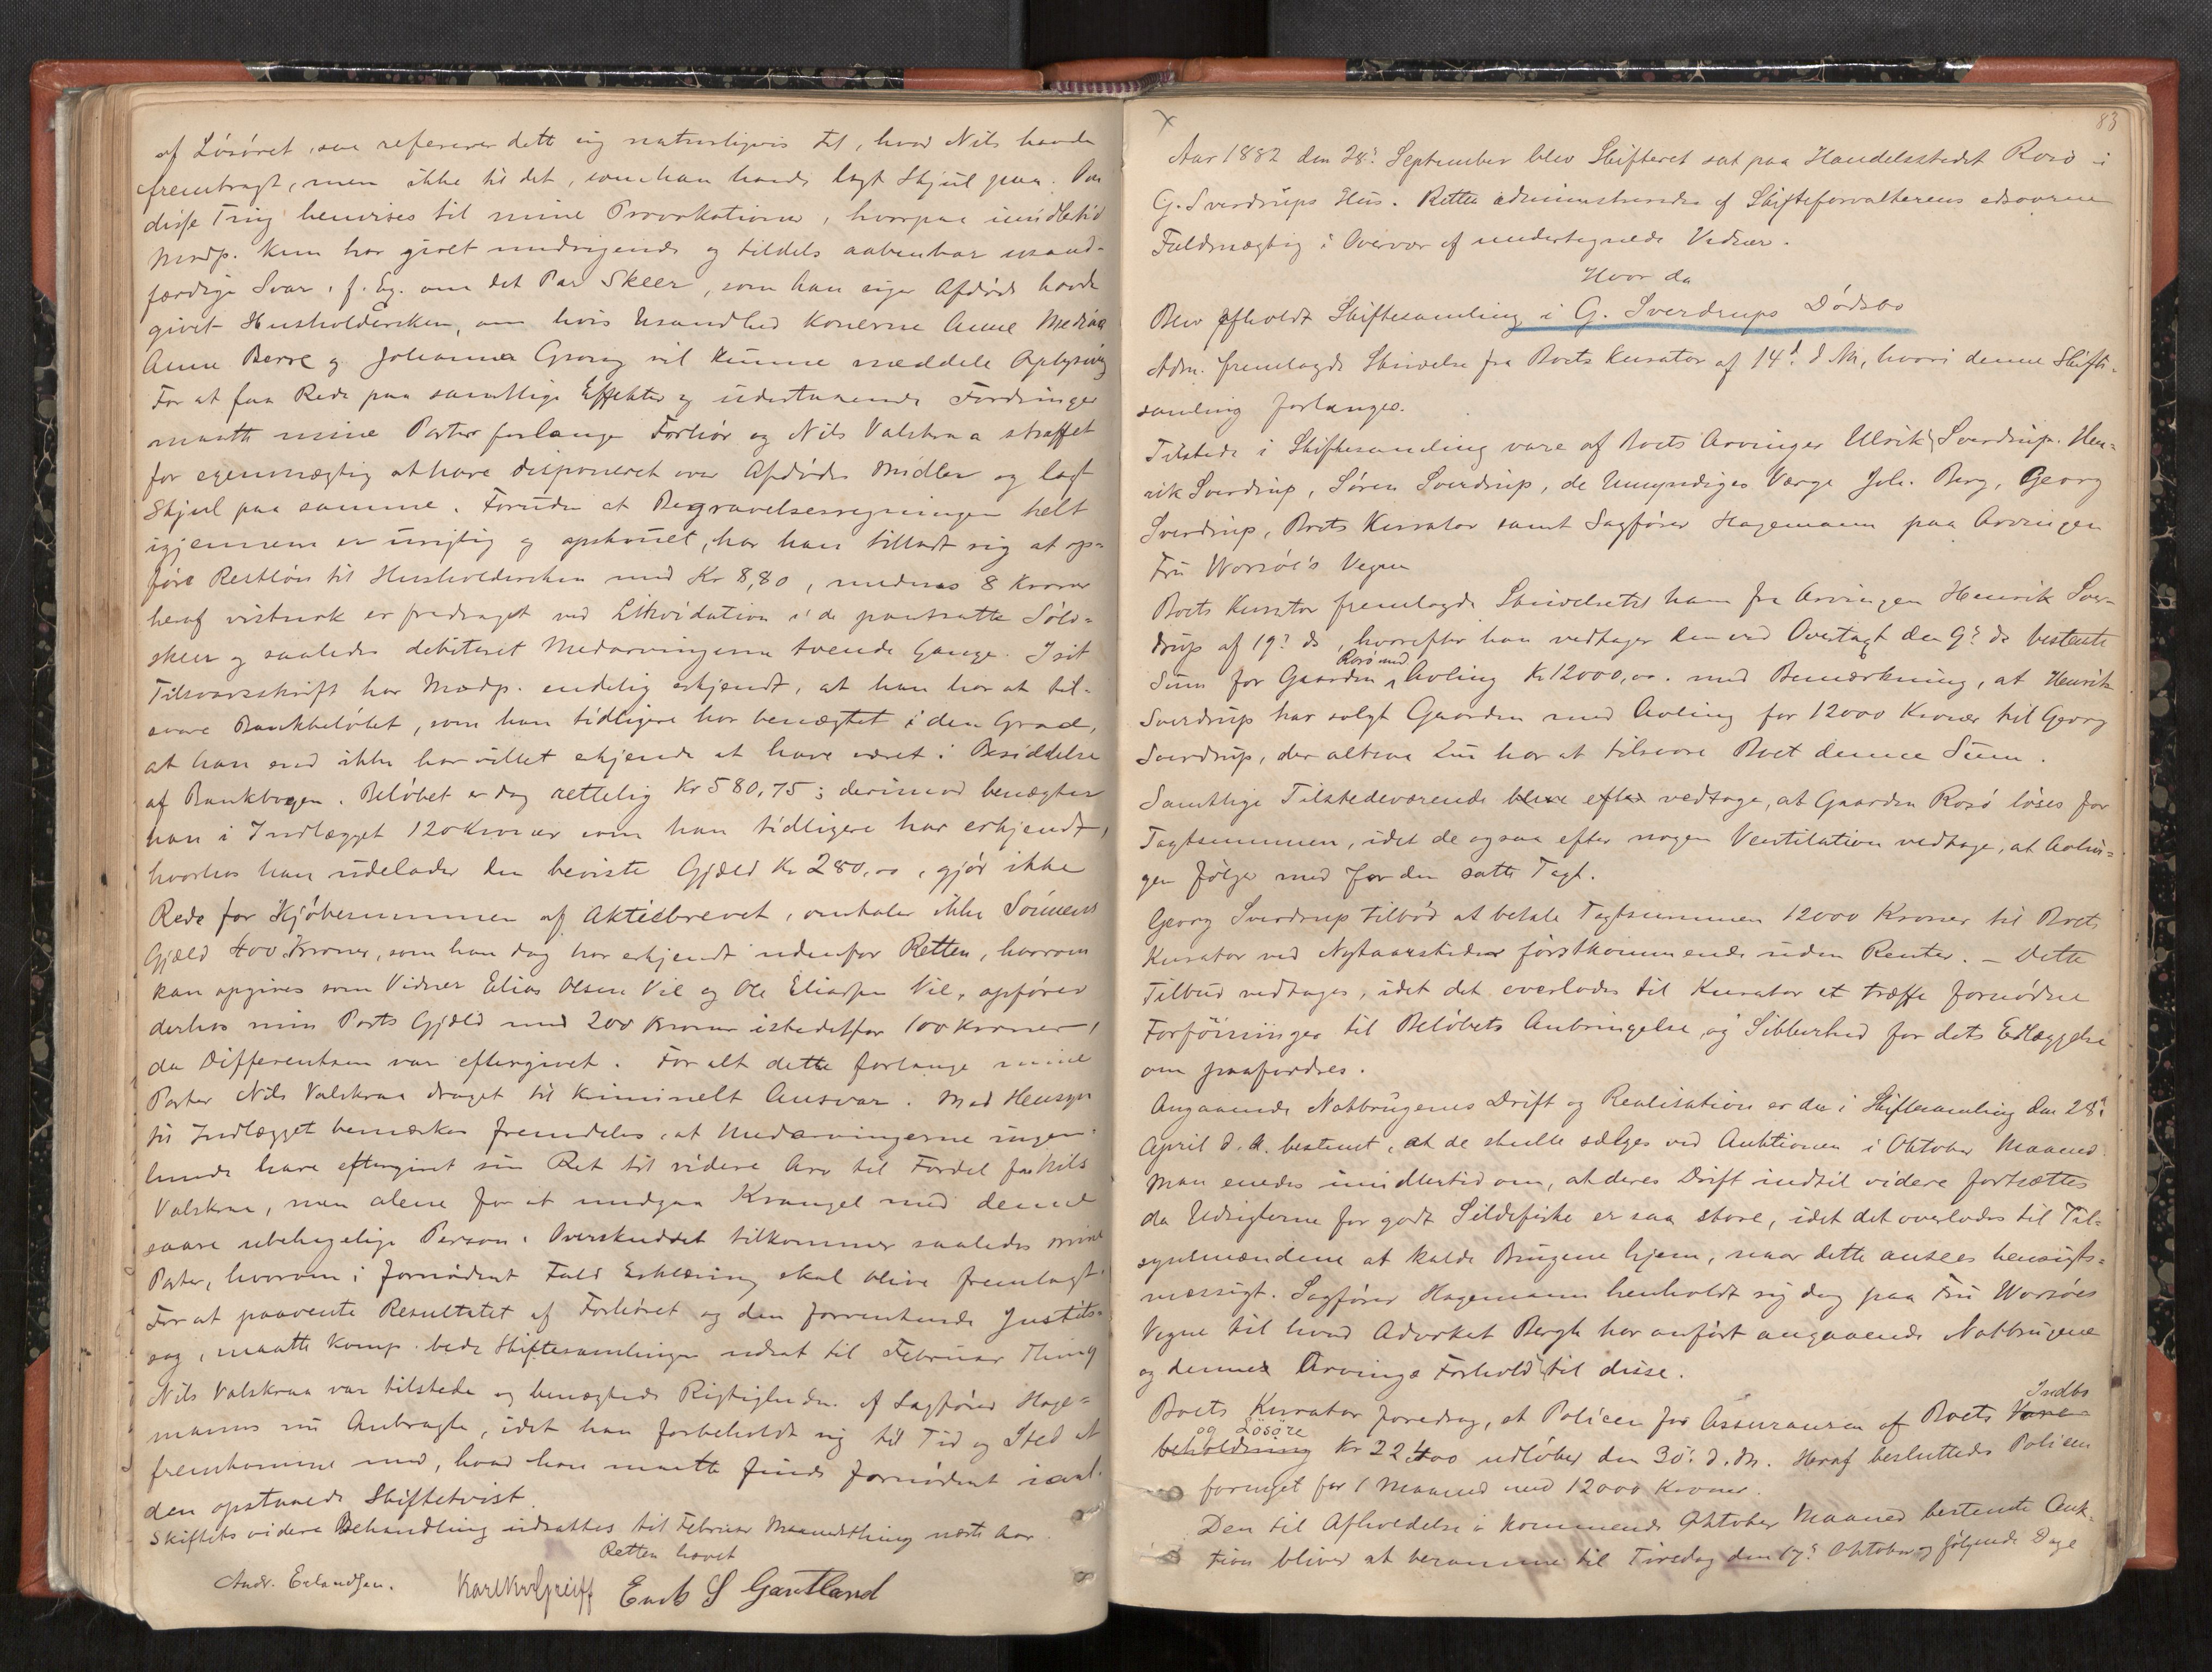 af Løsøret, saa refererer dette sig naturligvis til, hvad Nils havde
frembragt, men ikke til det, som han havde lagt Skjul paa. Om
disse Ting henvises til mine Provokationer, hvorpaa imidlertid
Modp. kun har givet undvigende og tildels aabenbar usand-
færdige Svar, f. Ex. om det Par Skeer, som han siger Afdøde havde
givet Husholdersken, om hvis Usandhed Konerne Anne
Anne Berre og Johanna Grong vil kunne meddele Oplysning
For at faa Rede paa samtlige Effekter og udestaaende Fordringer
maatte mine Parter forlange Forhør og Nils Valskraa straffet
for egenmægtig at have disponeret over Afdødes Midler og lagt
Skjul paa samme. Foruden at Begravelsesregningen helt
igjennem er urigtig og opskruet, har han tilladt sig at op-
føre Restløn til Husholdersken med Kr 8,80, medens 8 Kroner
heraf vistnok er fradraget ved Likvidation i de pantsatte Sølv-
skeer og saaledes debiteret Medarvingerne tvende Gange. I sit
Tilsvarsskrift har Modp. endelig erkjendt, at han har at til-
svare Bankbeløbet, som han tidligere har benægtet i den Grad,
at han end ikke har villet erkjende at have været i Besiddelse
af Bankbogen. Beløbet er dog rettelig Kr 580,75; derimod benægter
han i Indlægget 120 Kroner som han tidligere har erkjendt,
hvorhos han udelader den beviste Gjæld Kr 280,00, gjør ikke
Rede for Kjøbesummen af Aktiebrevet, omtaler ikke Sønnens
Gjæld 400 Kroner, som han dog har erkjendt udenfor Retten, hvorom
kan opgives som Vidner Elias Olsen Vie og Ole Eliassen Vie, opfører
derhos min Parts Gjæld med 200 Kroner istedetfor 100 Kroner,
da Differentsen var eftergivet. For alt dette forlange mine
Parter Nils Valskraa draget til kriminelt Ansvar. Med Hensyn
til Indlægget bemærkes fremdeles, at Medarvingerne ingen-
lunde have eftergivet sin Ret til videre Arv til Fordel for Nils
Valskraa, men alene for at undgaa Krangel med denne
saare ubehagelige Person. Overskuddet tilkommer saaledes mine
Parter, hvorom i fornødent Fald Erklæring skal blive fremlagt.
For at paavente Resultatet af Forhøret og den forventende Justits-
sag, maatte Komp. bede Skiftesamlingen udsat til Februar Thing
Nils Valskraa var tilstede og benægtede Rigtigheden af Sagfører Hage-
manns nu Anbragte, idet han forbeholdt sig til Tid og Sted at
fremkomme med, hvad han maatte finde fornødent i
den opstaaede Skiftetvist.
Skiftets videre Behandling udsattes til Februar Maanedsthing næste Aar
Retten hævet
Andr. Erlandsen. Karl Greiff S Gartland
83
Aar 1882 den 28de September blev Skifteret sat paa Handelsstedet Rosø i
G. Sverdrups Hus. Retten administreredes af Skifteforvalterens edsvorne
Fuldmægtig i Overvær af undertegnede Vidner.
Hvor da
Blev afholdt Skiftesamling i G. Sverdrups Dødsbo
Adm. fremlagde Skrivelse fra Boets Kurator af 14de d. M., hvori denne Skifte-
samling forlanges.
Tilstede i Skiftesamling vare af Boets Arvinger Ulrik Sverdrup, Hen-
rik Sverdrup, Søren Sverdrup, de Umyndiges Værge Joh. Berg, Georg
Sverdrup, Boets Kurator samt Sagfører Hagemann paa Arvingen
Fru Worsøe's Vegne
Boets Kurator fremlagde Skrivelse til ham fra Arvingen Henrik Sver-
drup af 19de ds, hvorefter han vedtager den ved Overtagt den 9de ds bestemte
Rosø med
Sum for Gaarden Avling Kr 12000,00. med Bemærkning, at Henrik
Sverdrup har solgt Gaarden med Avling for 12000 Kroner til Georg
Sverdrup, der altsaa nu har at tilsvare Boet denne Sum.
Samtlige Tilstedeværende blive efter vedtoge, at Gaarden Rosø løses for
Tagtsummen, idet de ogsaa efter nogen Ventilation vedtoge, at Avlin-
gen følger med for den satte Tagt.
Georg Sverdrup tilbød at betale Tagtsummen 12000 Kroner til Boets
Kurator ved Nytaarstider førstkommende uden Renter. – Dette
Tilbud vedtages, idet det overlodes til Kurator at træffe fornødne
Forføininger til Beløbets Anbringelse og Sikkerhed for dets Erlæggelse
om paafordres.
Angaaende Notbrugenes Drift og Realisation er der i Skiftesamling den 28de
April d. A. bestemt, at de skulle sælges ved Auktionen i Oktober Maaned.
Man enedes imidlertid om, at deres Drift indtil videre fortsættes
da Udsigterne for godt Sildefiske er saa store, idet det overlodes til Til-
synsmændene at kalde Brugene hjem, naar dette ansees hensigts-
mæssigt. Sagfører Hagemann henholdt sig dog paa Fru Worsøes
Vegne til hvad Advokat Bergh har anført angaaende Notbrugene
og dennes Arvings Forhold til disse.
Indbo
Boets Kurator foredrog, at Policen for Assurancen af Boets Vare-
og Løsøre
beholdning Kr 22,400 udløber den 30de d. M. Heraf besluttedes Policen
fornyet for 1 Maaned med 12000 Kroner.
Den til Afholdelse i kommende Oktober Maaned bestemte Auk-
tion bliver at beramme til Tirsdag den 17de Oktober og følgende Dage